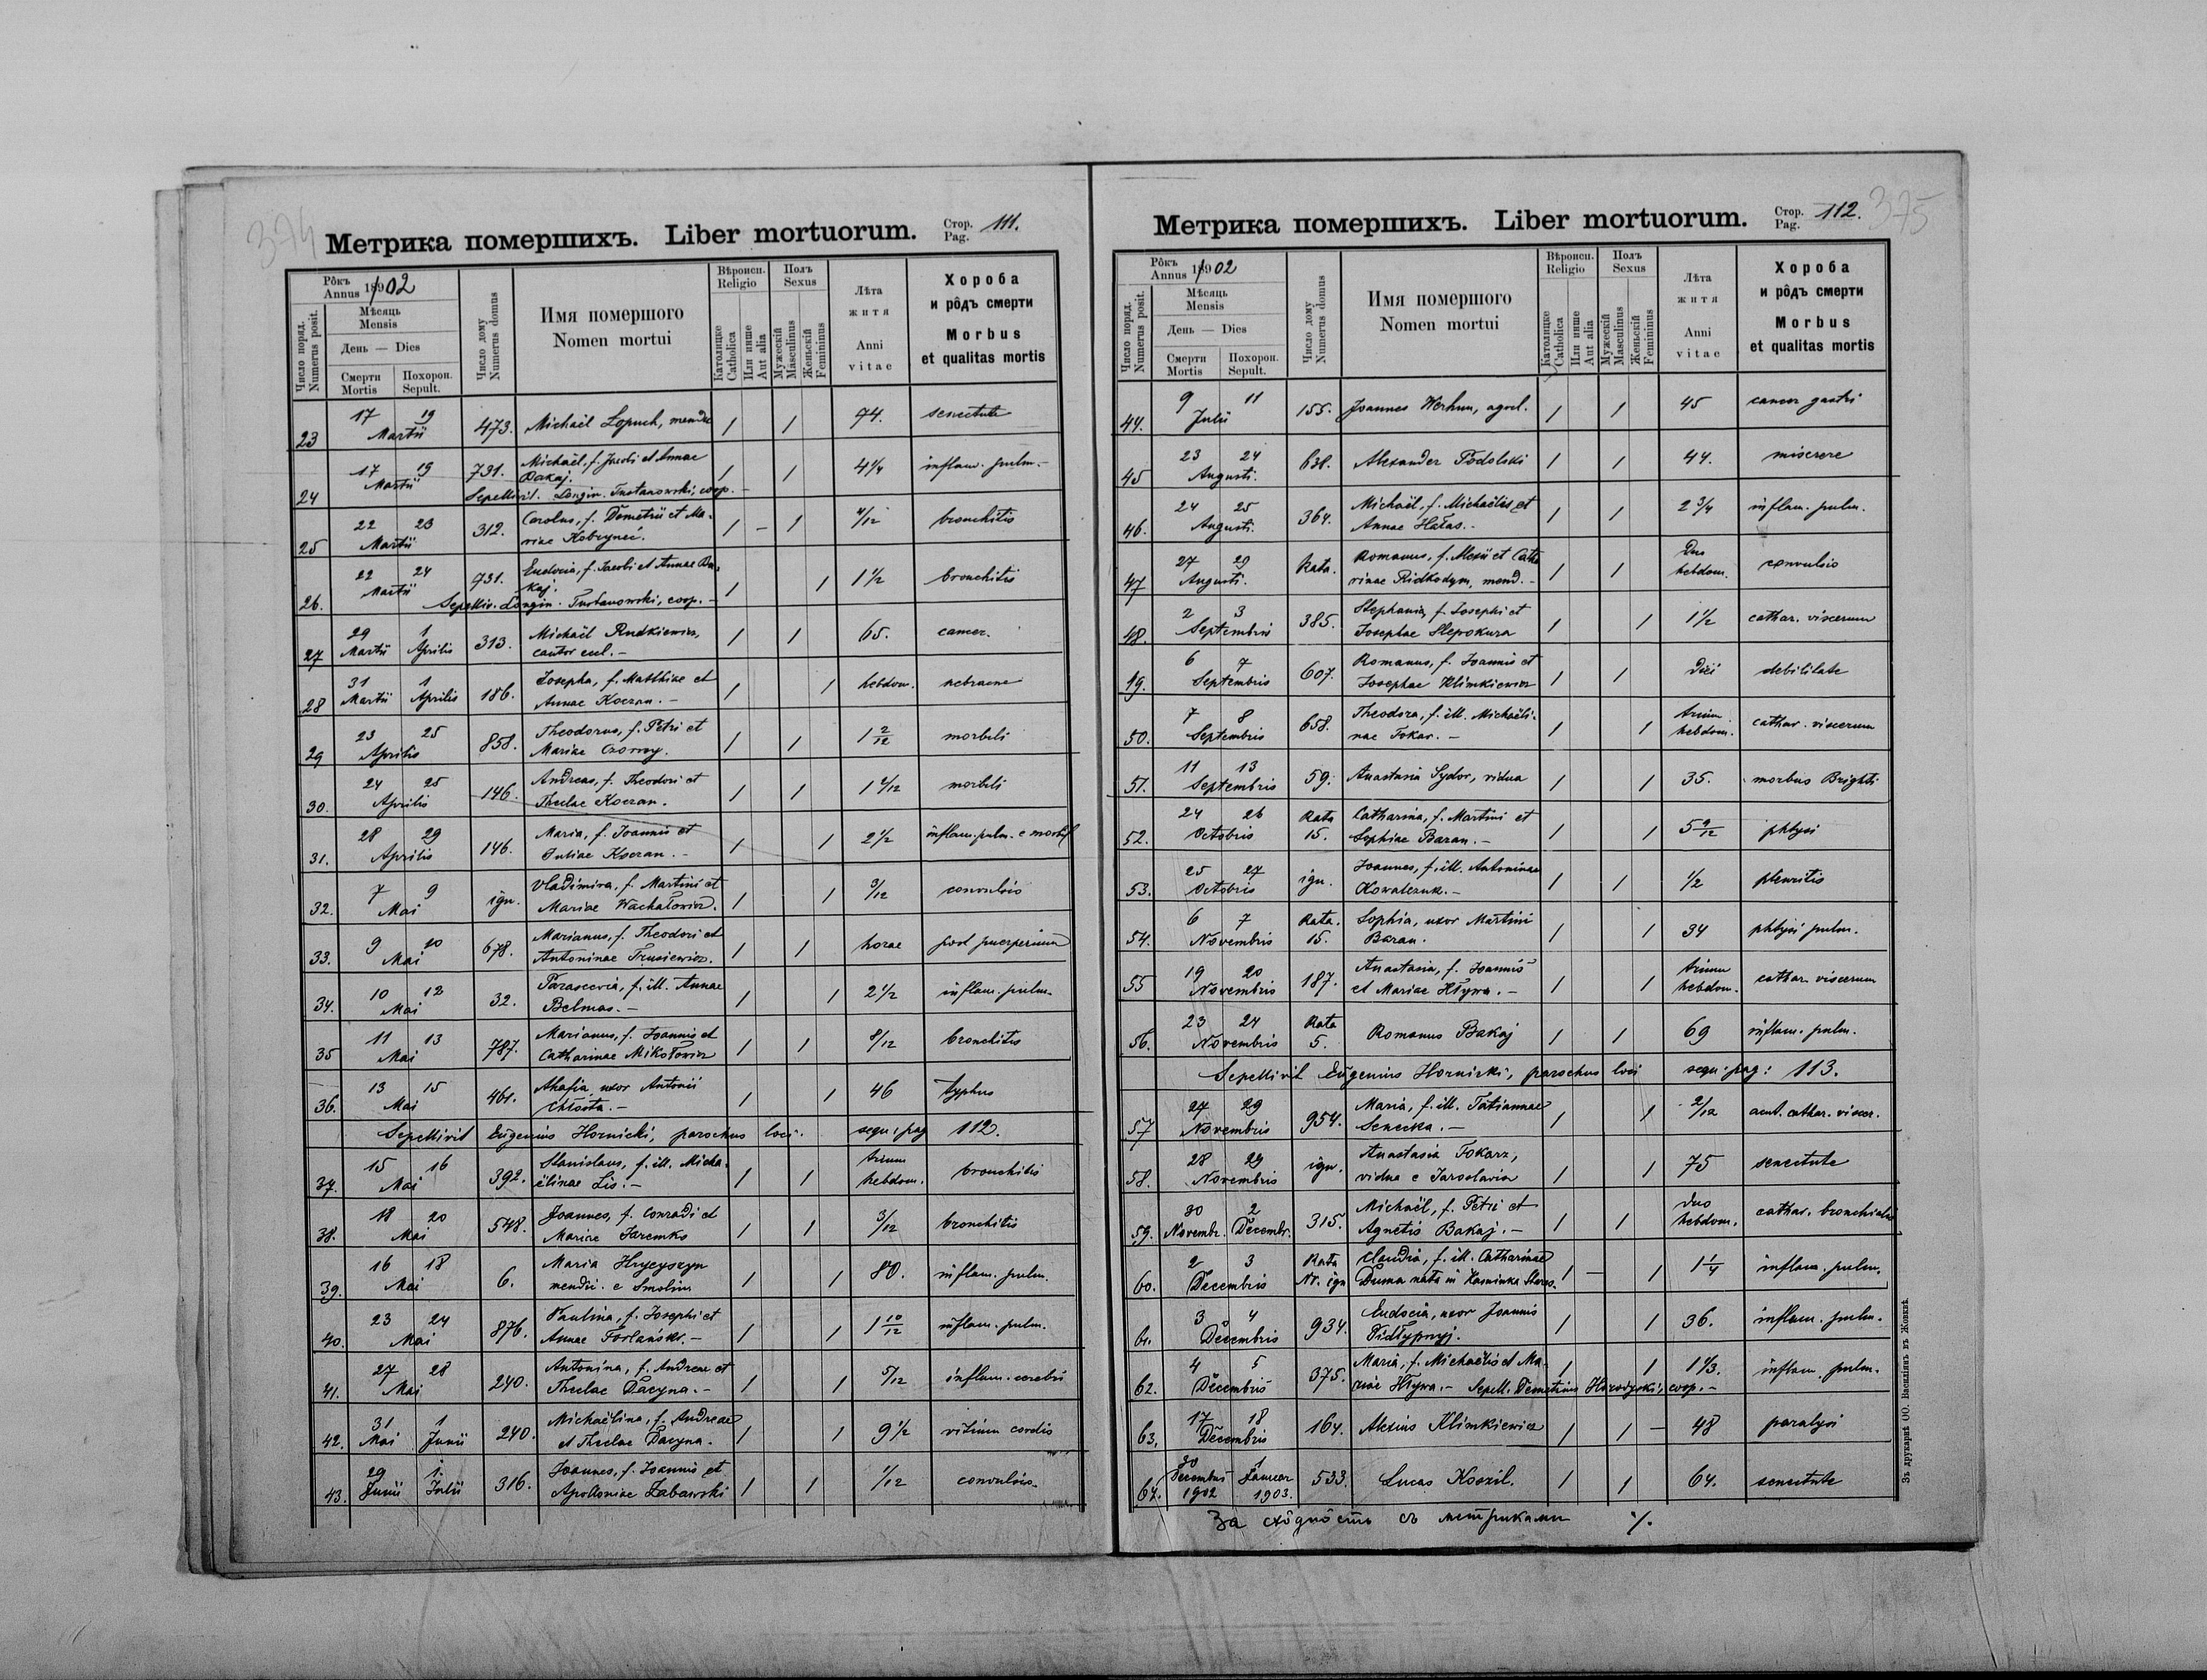 374
Метрика помершихъ. Liber mortuorum. Стор. Pag. 111.
Рôкъ Annus 1902
Число поряд. Numerus posit.
Мѣсяць Mensis
День — Dies
Смерти Mortis
Похорон. Sepult.
Число дому Numerus domus
Имя помершого Nomen mortui
Вѣроисп. Religio
Католицке Catholica
Или инше Aut alia
Полъ Sexus
Мужескій Masculinus
Женьскій Femininus
Лѣта житя Anni vitae
Хороба и рôдъ смерти Morbus et qualitas mortis
23 17 19 Martii 473. Michaël Łopuch, mendic / / 74. senectute
24 17 19 Martii 731. Michaël, f. Jacobi et Annae
Bakaj. / / 4 1/4 inflam. pulm.-
Sepellivit. Longin. Tustanowski, coop. -
25 22 23 Martii 312. Carolus, f. Demetrii et Ma-
riae Kobrynec. / - / 4/12 bronchitis
26. 22 24 Martii 731. Eudocia, f. Jacobi et Annae Ba-
kaj. / / 1 1/2 bronchitis
Sepelliv. Longin. Tustanowski, coop. -
27 29 Martii 1 Aprilis 313. Michaël Rudkiewicz,
cantor eccl. - / / 65. cancer.
28 31 Martii 1 Aprilis 186. Josepha, f. Matthiae et
Annae Koczan. - / / hebdom.
29 23 25 Aprilis 858. Theodorus, f. Petri et
Mariae Czorny. / / 1 2/12 morbili
30. 24 25 Aprilis 146. Andreas, f. Theodori et
Theclae Koczan. / / morbili
31. 28 29 Aprilis 146. Maria, f. Joannis et
Juliae Koczan. - / / 2 1/2 inflam. pulm. e morbil
32. 7 9 Mai ign. Vladimira, f. Martini et
Mariae Wachałowicz. / / 3/12 convulsio
33. 9 10 Mai 678. Marianus, f. Theodori et
Antoninae Trusiewicz. / / horae post puerperium
34. 10 12 Mai 32. Parascevia, f. ill. Annae
Belmas. - / / 2 1/2 inflam. pulm.
35 11 13 Mai 787. Marianus, f. Joannis et
Catharinae Mikołowicz / / 8/12 bronchitis
36. 13 15 Mai 461. Ahafia, uxor Antonii
Chłosta. - / / 46 typhus
Sepellivit Eugenius Hornicki, parochus loci. sequ: pag 112.
37. 15 16 Mai 392. Stanislaus, f. ill. Micha-
ëlinae Lis. - / / trium hebdom. bronchitis
38. 18 20 Mai 548. Joannes, f. Conradi et
Mariae Jaremko / / 3/12 bronchitis
39. 16 18 Mai 6. Maria Hrycyszyn
mendic. e Smolin / / 80. inflam. pulm.
40. 23 24 Mai 876. Paulina, f. Josephi et
Annae - / / 1 10/12 inflam. pulm.
41. 27 28 Mai 240. Antonina, f. Andreae et
Theclae Dacyna. - / / 5/12 inflam. cerebri
42. 31 Mai 1 Junii 240. Michaëlina, f. Andreae
et Theclae Dacyna. / / 9 1/2 vitium cordis
43. 29 Junii 1. Julii 316. Joannes, f. Joannis et
Apolloniae Zabawski / / 1/12 convulsio.
375
Метрика помершихъ. Liber mortuorum. Стор. Pag. 112.
Рôкъ Annus 1902
Число поряд. Numerus posit.
Мѣсяць Mensis
День — Dies
Смерти Mortis
Похорон. Sepult.
Число дому Numerus domus
Имя помершого Nomen mortui
Вѣроисп. Religio
Католицке Catholica
Или инше Aut alia
Полъ Sexus
Мужескій Masculinus
Женьскій Femininus
Лѣта житя Anni vitae
Хороба и рôдъ смерти Morbus et qualitas mortis
44. 9 11 Julii 155. Joannes Werhun, agrel. / / 45 cancer gastri
45 23 24 Augusti. 638. Alexander Podolski / / 44. miserere
46. 24 25 Augusti. 364. Michaël, f. Michaëlis et
Annae Hałas. - / / 2 3/4 inflam. pulm.
47 27 29 Augusti. Rata. Romanus, f. Alexii et Catha
rinae Pidkodym, mend. - / / Duo hebdom. convulsio
48. 2 3 Septembris 385. Stephania, f. Josephi et
Josephae Slepokura / / 1 1/2 cathar. viscerum
19. 6 7 Septembris 607. Romanus, f. Joannis et
Josephae Klimkiewicz / / debilitate
50. 7 8 Septembris 658. Theodora, f. ill. Michaëli-
nae Tokar. - / / trium hebdom. cathar. viscerum
51. 11 13 Septembris 59. Anastasia Sydor, vidua / / 35. morbus Brighti
52. 24 26 Octobris Rata 15. Catharina, f. Martini et
Sophiae Baran. - / / 5 9/12 phtysi
53. 25 27 Octobris ign. Joannes, f. ill. Antoninae
Kowalczuk. - / / 1/2 pleuritis
54. 6 7 Novembris Rata. 15. Sophia, uxor Martini
Baran. / / 34 phtysi pulm.
55 19 20 Novembris 187. Anastasia, f. Joannis
et Mariae Hływa. - / / trium hebdom. cathar. viscerum
56. 23 24 Novembris Rata 5. Romanus Bakaj / / 69 inflam. pulm.
Sepellivit Eugenius Hornicki, parochus loci sequ: pag: 113.
57 27 29 Novembris 954. Maria, f. ill. Tatiannae
Senecka. - / / 2/12 acut. cathar. viscer.
58. 28 29 Novembris ign. Anastasia Tokarz,
vidua e Jaroslavia / / 75 senectute
59. 30 Novembr. 2 Decembr. 315. Michaël, f. Petri et
Agnetis Bakaj. - / / duo hebdom. cathar. bronchialis
60. 2 3 Decembris Rata Nr. ign Claudia, f. ill. Catharinae
Duma nata in Kaminka / - / 1 1/4 inflam. pulm.
61. 3 4 Decembris 934. Eudocia, uxor Joannis
Pidłypnyj. / / 36. inflam. pulm.
62. 4 5 Decembris 375. Maria, f. Michaëlis et Ma-
riae Hływa. - Sepell. Demetrius Horodyski, coop. - / / 1 1/3. inflam. pulm.
63. 17 18 Decembris 164. Alexius Klimkiewicz / / - 48 paralysi
64. 30 Decembris 1902 1 Januar 1903. 533. Lucas Koszil. / / 64. senectute
За схôдность съ метриками ·/.
Зъ друкарнѣ ОО. Василіянъ въ Жовквѣ.